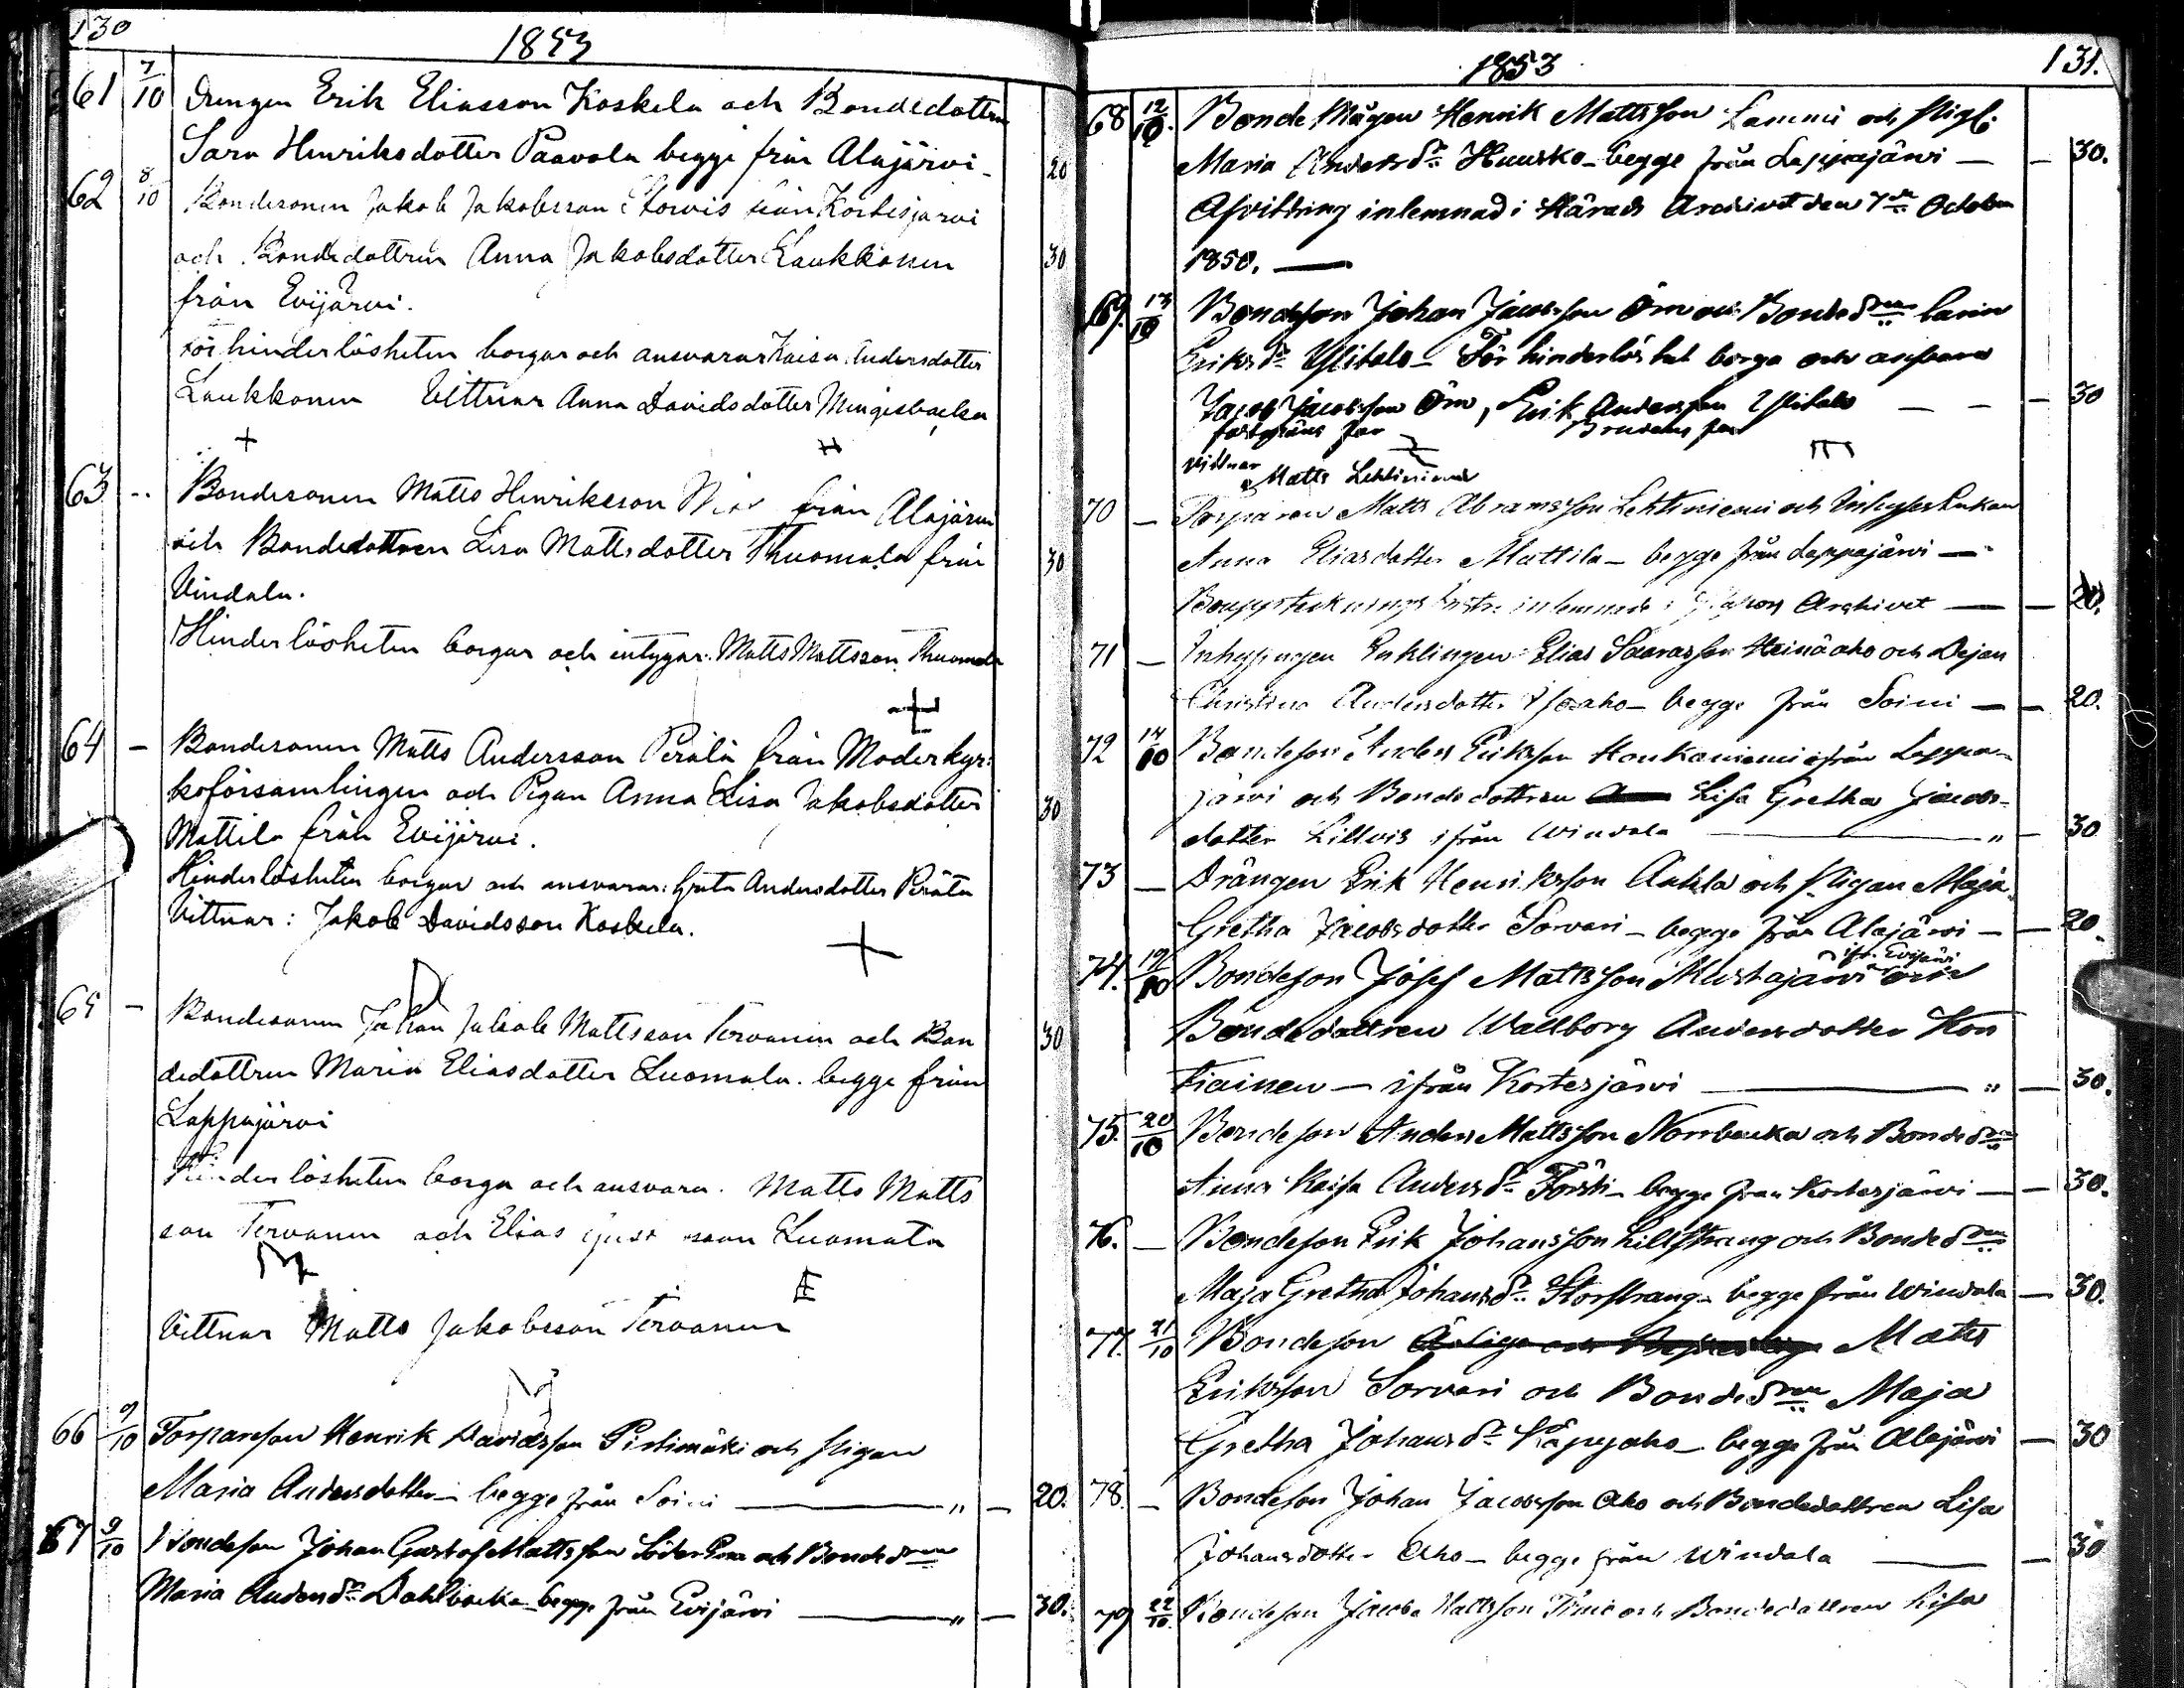 130
1853
61 7/10 Drengen Erik Eliasson Koskela och Bondedottren
Sara Henriksdotter Paavola begge från Alajärvi 20
62 8/10 Bondesonen Jakob Jakobsson Storvis från Kortesjärvi
och Bondedottren Anna Jakobsdotter Laukkonen 30
från Evijärvi.
För hinderlösheten borgar och ansvarar Kaisa Andersdotter
Laukkonen Vittnar Anna Davidsdotter Mengesbacka
63 Bondesonen Matts Henriksson från Alajärvi
och Bondedottren Lisa Mattsdotter Thuomala från 30
Vindala.
Hinderlösheten borgar och intygar: Matts Mattsson Thuomala
64 – Bondesonen Matts Andersson Perälä från Moderkyr-
koförsamlingen och Pigan Anna Lisa Jakobsdotter 30
Mattila från Evijärvi.
Hinderlösheten borgar och ansvarar: Greta Andersdotter Perälä
Vittnar: Jakob Davidsson Koskela.
65 – Bondesonen Johan Jakob Mattsson Tervonen och Bon 30
dedottren Maria Eliasdotter Luomala. begge från
Lappajärvi
Hinderlösheten borga och ansvara. Matts Matts
son Tervonen och Elias Gust sson Luomala
Vittnar Matts Jakobsson Tervonen
66 9/10 Torpareson Henrik Davidsson Pirtimäki och Pigan
Maria Andersdotter – begge från Soini — " — 20.
67 9/10 Bondeson Johan Gustaf Mattsson och Bondedren
Maria Andersdr Dahlbacka – begge från Evijärvi — " — 30.
1853
131.
68 12/10. Bonde Mågen Henrik Mattsson Lammi och Pig.
Maria Andersdr Huusko – begge från Lappajärvi — — 30.
Afvittring inlemnad i Härads Archivet den 7de October
1850. —
69. 13/10 Bondeson Johan Jacobsson Öm och Bondedren Carin
Eriksdr Ylitalo – För hinderlöshet borga och ansvara
Jacob Jacobsson Öm, Erik Andersson Ylitalo — — — 30
fästmans far Brudens far
vittnar Matts Lehtiniemi
70 – Torparen Matts Abramsson Lehtiniemi och Inhyses Enkan
Anna Eliasdotter Mattila – begge från Lappajärvi —
Bouppteckning inlemnade i Archivet — — 20.
71 – Inhysingen Enklingen Elias Heinäaho och Dejan
Christina Andersdotter – begge från Soini — — 20.
72 14/10 Bondeson Anders Eriksson Honkaniemi ifrån Lappa-
järvi och Bondedottren Lisa Gretha Jacobs-
dotter Lillvis ifrån Windala — " — 30
73 – Drängen Erik Henriksson Anttila och Pigan Maja
Gretha Jacobsdotter Sorvari – begge från Alajärvi — — 20.
ifr. Evijärvi
74. 19/10 Bondeson Josef Mattsson Mustajärvi och
Bondedottren Wallborg Andersdotter Kon
tiainen — ifrån Kortesjärvi — " — 30.
75. 20/10 Bondeson Anders Mattsson Norrbacka och Bondedren
Anna Kaisa Andersdr Försti – begge från Kortesjärvi — — 30.
76. – Bondeson Erik Johansson Lillstrang och Bondedren
Maja Gretha Johansdr Storstrang – begge från Windala — 30.
77. 21/10 Bondeson Matts
Eriksson Sorvari och Bondedren Maja
Gretha Johansdr – begge från Alajärvi — 30
78. – Bondeson Johan Jacobsson Aho och Bondedottren Lisa
Johansdotter Aho – begge från Windala — — 30
79 22/10. Bondeson Jacob Mattsson och Bondedottren Lisa